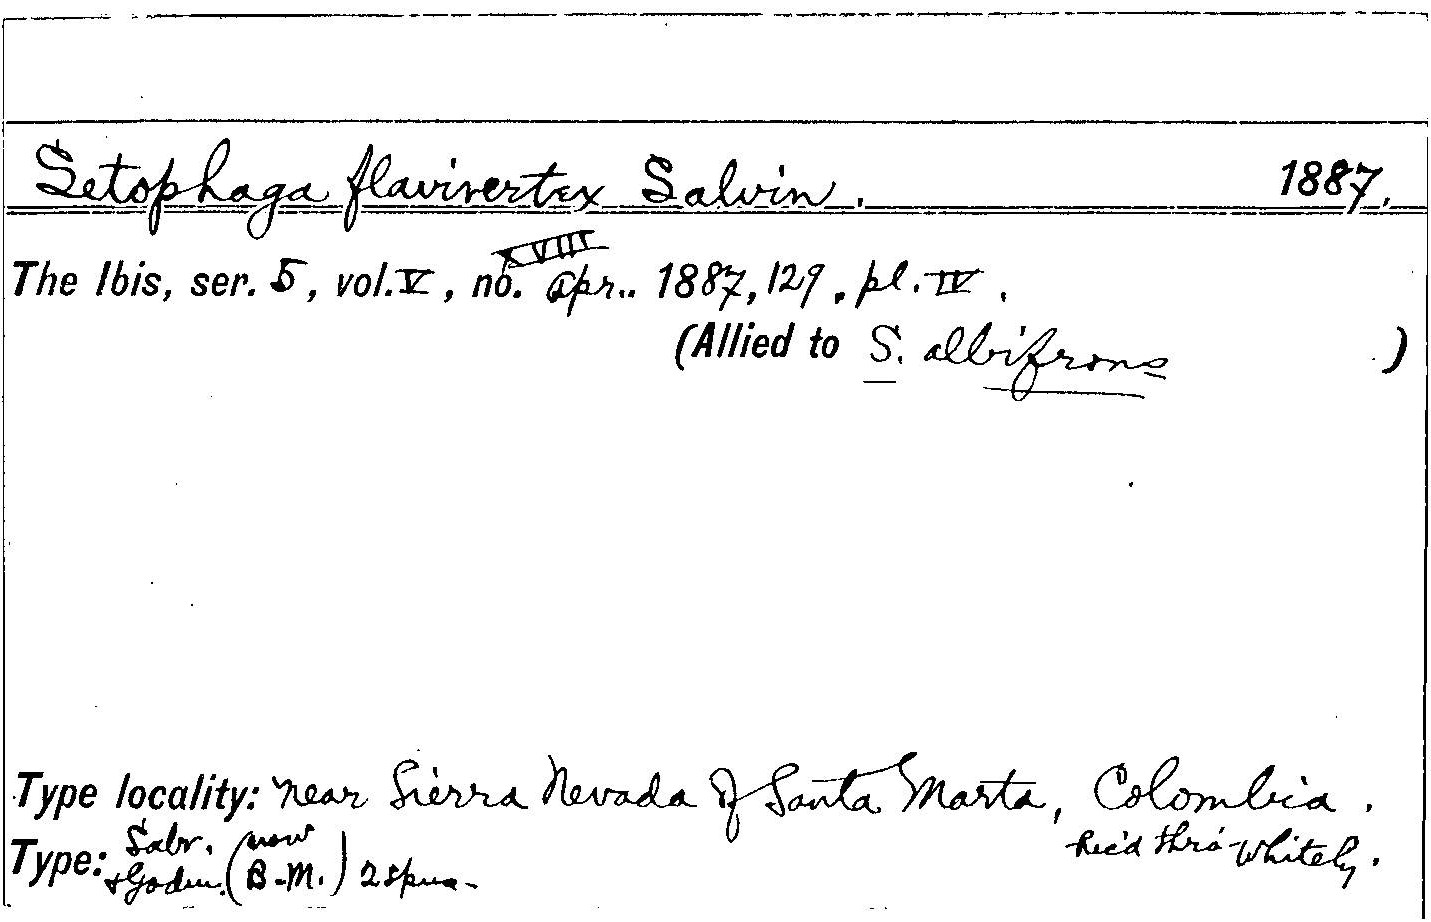 Setophaga flavivertex Salvin. 1887.
XVIII
The Ibis, ser. 5, vol. V, no. Apr.. 1887, 129, pl. IV.
(Allied to S. albifrons )
Type locality: near Sierra Nevada of Santa Marta, Colombia.
Rec'd thro' Whitely.
Type: Salv. & Godm. (now B.M.) 2 spms.